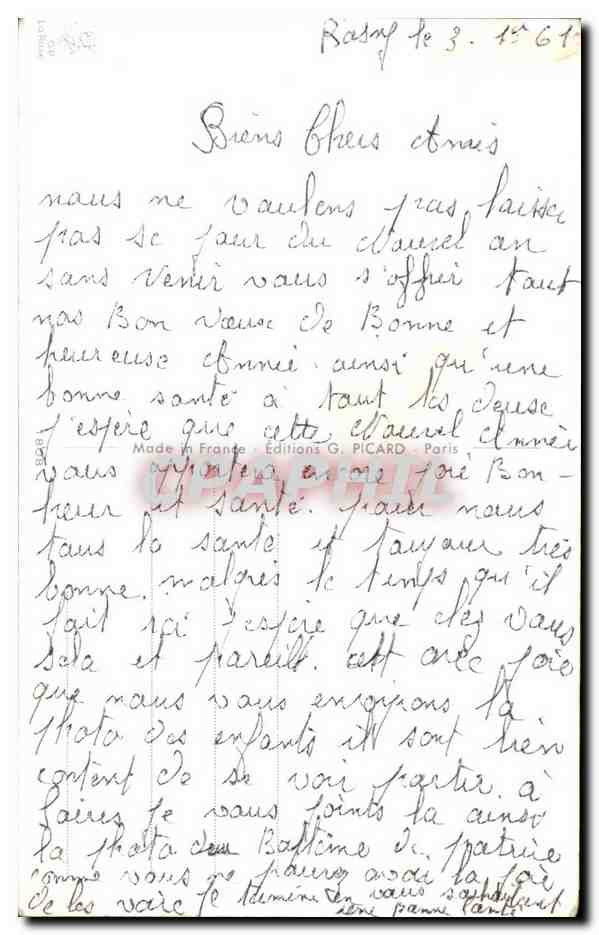 Rasny le 3. 1er 61
Biens Chers Amis
nous ne voulons pas laisse
pas se jour du Nouvel an
sans venir vous s'offrir tout
nos Bon vœux de Bonne et
heureuse Année ainsi qu'une
bonne santé à tout les deux
j'espère que cette Nouvel Année
Made in France - Éditions G. PICARD - Paris
vous apportera encore joié Bon-
CPAPHIL
heur et santé. pour nous
tous la santé et toujour très
bonne. malgrés le temps qu'il
fait ici j'espère que chez vous
sela et pareill. c'est avec joie
que nous vous envoyons la
photo des enfants ill sont bien
content de se voir partir à
je vous joints la ainsi
la photo du Baptème de patrice
comme vous ne pouvez avoir la joie
de les voir je termine en vous souhaitent
une bonne santé